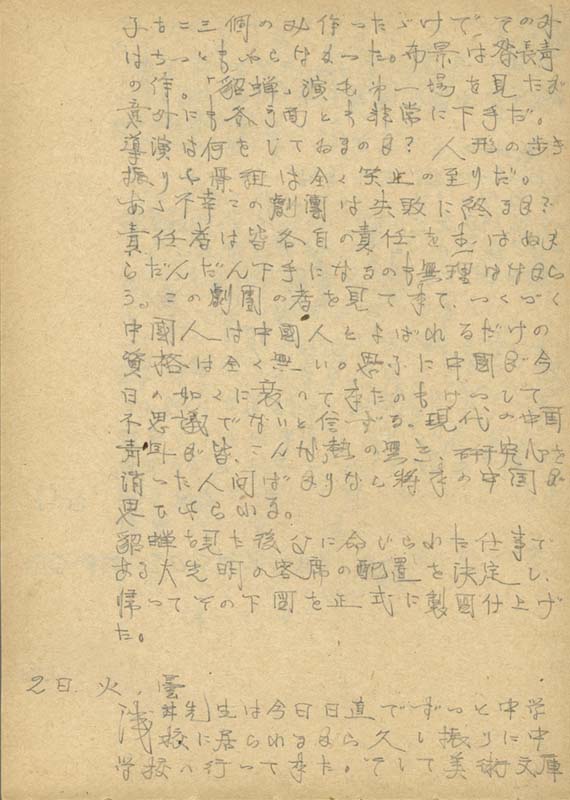 子も二三個のみ作っただけで、その外
はちっともやらなかった。布景は
の作。「貂蝉」演も第一場を見たが
意外にも各方面とも非常に下手だ。
導演は何をしてゐるのか？人形の歩き
振りや骨組は全く笑止の至りだ。
あゝ不幸この劇團は失敗に終るか？
責任者は皆各自の責任を負はぬか
らだんだん下手になるのも無理はけなら
う。この劇團の者を見て来て、つくづく
中國人は中國人とよばれるだけの
資格は全く無い。思ふに中國が今
日の如くに衰へて来たのもけっして
不思議でないと信ずる。現代の中国
青年が皆、こんな熱の無き、研究心を
消った人间ばかりなら将来の中国が
思ひやられる。
貂蝉を見た後父に命じられた仕事で
ある大光明の客席の配置を決定し、
帰ってその下圖を正式に製圖仕上げ
た。
2日. 火、曇
浅井先生は今日日直でずっと中学
校に居られるから久し振りに中
学校へ行って来た。そして美術文庫